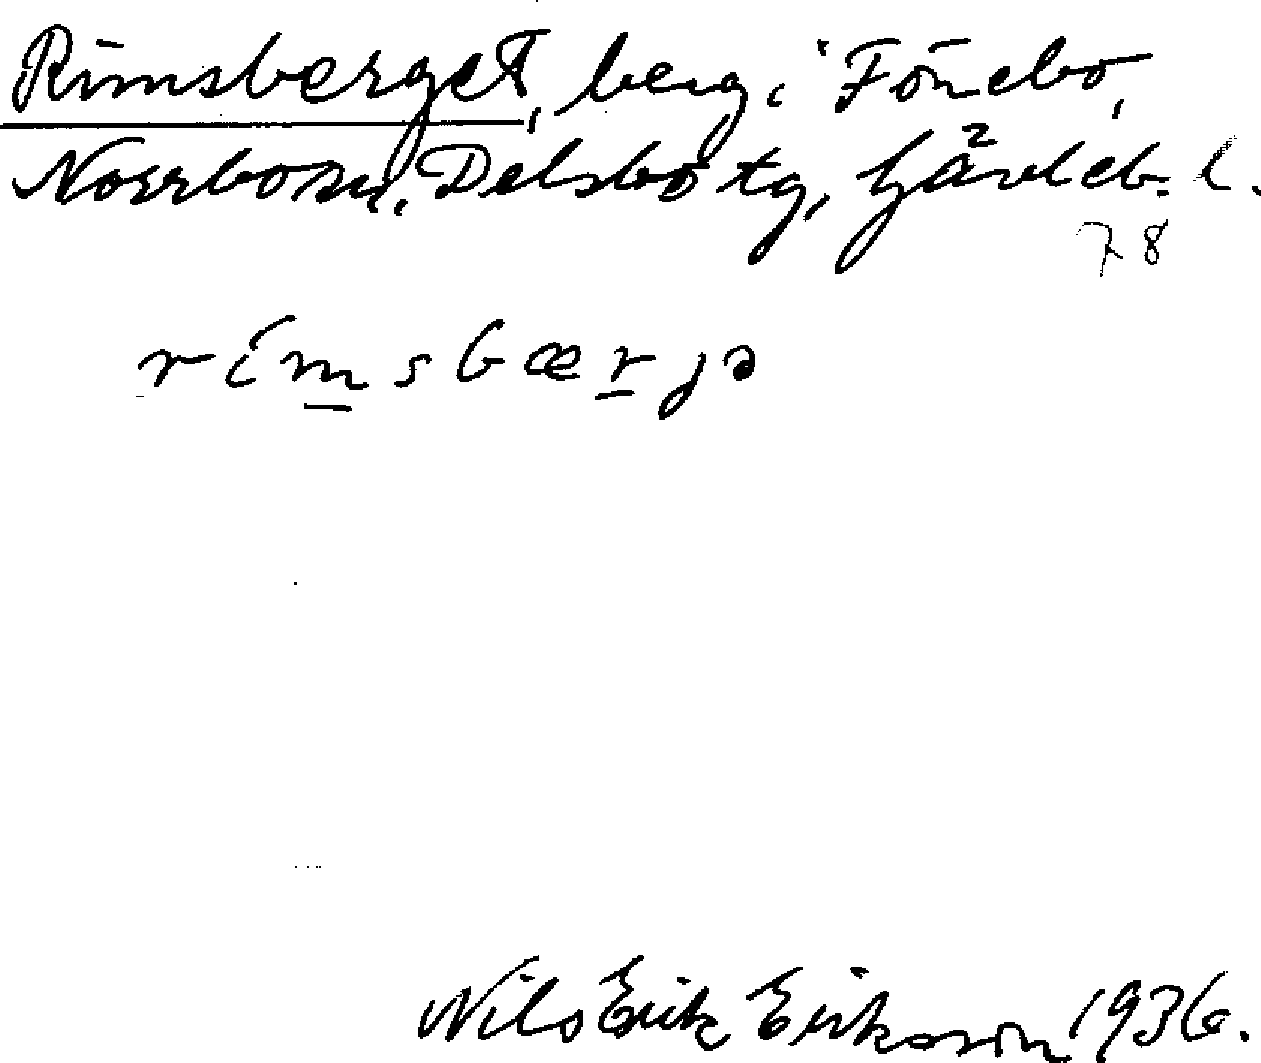 Rimsberget, berg i Fönebo,
Norrbo sn, Delsbo tg, Gävleb. l.
78
rimsbærjə
Nils Erik Eriksson 1936.